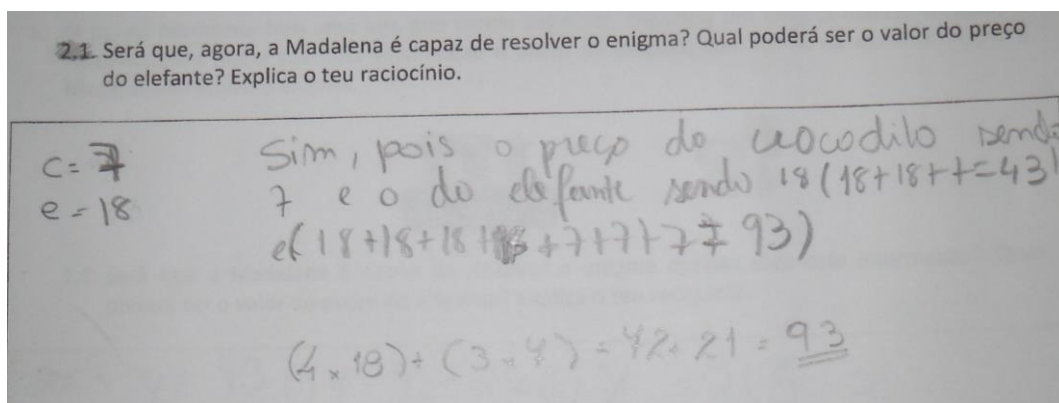 2.1. Será que, agora, a Madalena é capaz de resolver o enigma? Qual poderá ser o valor do preço
do elefante? Explica o teu raciocínio.
c = 7
e = 18
Sim, pois o preço do crocodilo sendo
7 e o do elefante sendo 18 (18+18+7=43)
e( 18+18+18+18+7+7+7 = 93)
(4 x 18) + (3 x 7) = 72 + 21 = 93